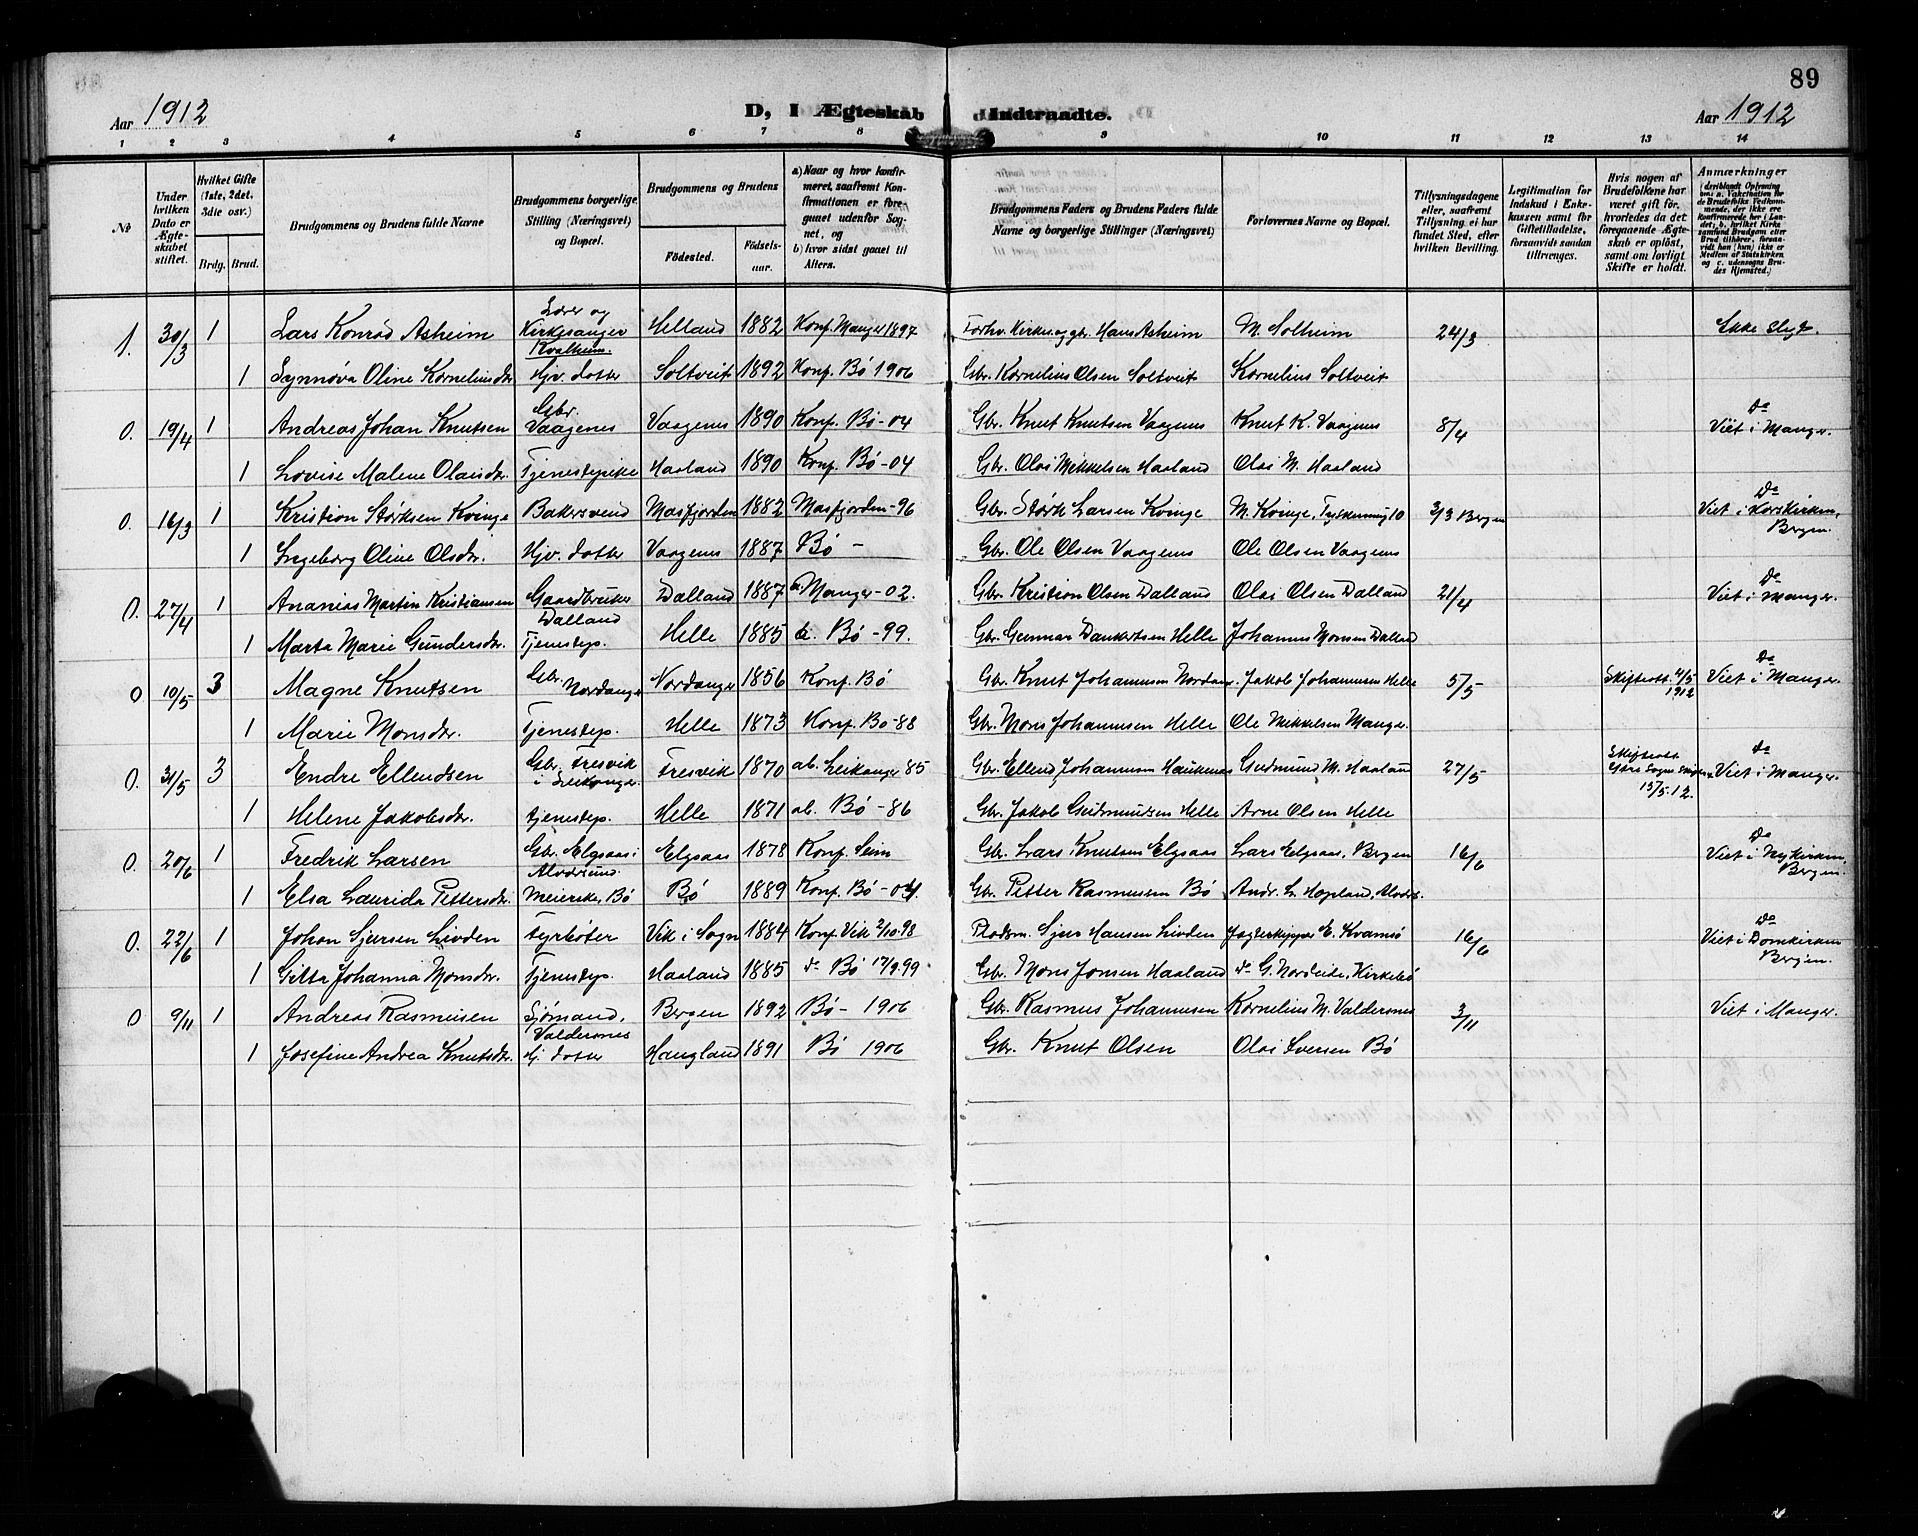 89
Aar 1912
D, I Ægteskab Indtraadte.
Aar 1912
1 2 3 4 5 6 7 8 9 10 11 12 13 14
№
Under hvilken Dato er Ægteskabet stiftet.
Hvilket Gifte (1ste, 2det, 3die osv.)
Brdg. Brud.
Brudgommens og Brudens fulde Navne
Brudgommens borgerlige Stilling (Næringsvei) og Bopæl.
Brudgommens og Brudens
Födested.
Födselsaar.
a) Naar og hvor konfirmeret, saafremt Konfirmationen er foregaaet udenfor Sognet, og
b) hvor sidst gaaet til Alters.
Brudgommens Faders og Brudens Faders fulde Navne og borgerlige Stillinger (Næringsvei)
Forlovernes Navne og Bopæl.
Tillysningsdagene eller, saafremt Tillysning ei har fundet Sted, efter hvilken Bevilling.
Legitimation for Indskud i Enkekassen samt for Giftetilladelse, forsaavidt saadan tiltrænges.
Hvis nogen af Brudefolkene har været gift før, hvorledes da det foregaaende Ægteskab er oplöst, samt om lovligt Skifte er holdt.
Anmærkninger
1. 30/3 1 Lars Konrad Asheim Lærer og Kirkesanger Kvalheim. Helland 1882 Konf. Manger 1897 Forhv. Kirkes. og gbr. Hans Asheim M. Solheim 24/3 Ikke slegt.
1 Synnøva Oline Kornelinsdtr. Hjv. dotter Soltveit 1892 Konf. Bø 1906 Gbr. Kornelius Olsen Soltveit Kornelius Soltveit
0. 19/4 1 Andreas Johan Knutsen Gbr. Vaagenes Vaagenes 1890 Konf. Bø -04 Gbr. Knut Knutsen Vaagenes Knut K. Vaagenes 8/4 Do Viet i Manger.
1 Lovise Malene Olaisdtr. Tjenestepike Haaland 1890 Konf. Bø -04 Gbr. Olai Mikkelsen Haaland Olai M. Haaland
0. 16/3 1 Kristian Størksen Kvinge Bakersvend Masfjorden 1882 Masfjorden -96 Gbr. Størk Larsen Kvinge M. Kvinge, 10 3/3 Bergen Do Viet i Korskirken, Bergen.
1 Ingeborg Oline Olsdtr. Hjv. dotter Vaagenes 1887 Bø - Gbr. Ole Olsen Vaagenes Ole Olsen Vaagenes
0. 27/4 1 Ananias Martin Kristiansen Gaardbruker Dalland Dalland 1887 a. Manger -02. Gbr. Kristian Olsen Dalland Olai Olsen Dalland 21/4 Do Viet i Manger.
1 Marta Marie Gundersdtr. Tjenestep. Helle 1885 Bø -99. Gbr. Gunnar Dankertsen Helle Johannes Monsen Dalland
0 10/5 3 Magne Knutsen Gbr. Nordanger Nordanger 1856 Konf. Bø Gbr. Knut Johannesen Nordan. Jakob Johannesen Helle 5/5 Skifteatt. 4/5 1912 Do Viet i Manger.
1 Marie Monsdtr. Tjenestep. Helle 1873 Konf. Bø -88 Gbr. Mons Johannesen Helle Ole Mikkelsen Manger.
0. 31/5 3 Endre Ellendsen Gbr. Fresvik i Leikanger Fresvik 1870 ab. Leikanger 85 Gbr. Ellend Johannesen Haukenes Gudmund M. Haaland 27/5 Skifteatt. 15/5.12. do Viet i Manger.
1 Helene Jakobsdtr. tjenestep. Helle 1871 ab. Bø -86 Gbr. Jakob Gudmundsen Helle Arne Olsen Helle
0. 20/6 1 Fredrik Larsen Gbr. Elgsaas i Alversund Elgsaas 1878 Konf. Seim Gbr. Lars Knutsen Elgsaas Lars Elgsaas, Bergen 16/6 Do Viet i Nykirken, Bergen.
1 Elsa Laurida Pettersdtr. Meierske, Bø Bø 1889 Konf. Bø -04. Gbr. Petter Rasmusen Bø Andr. L. Hopland, Alvers.
0. 22/6 1 Johan Sjursen Livden Fyrbøter Vik i Sogn 1884 Konf. Vik 2/10.98 Pladsm. Sjur Hansen Livden Jagteskipper E. Kvamsø 16/6 Do Viet i Domkirken Bergen.
1 Gitta Johanna Monsdtr. Tjenestep. Haaland 1885 do Bø 17/9.99 Gbr. Mons Jonsen Haaland do G. Nordeide, Kirkebø
0 9/11 1 Andreas Rasmusen Sjømand, Valdersnes Bergen 1892 Bø - 1906 Gbr. Rasmus Johannesen Kornelius M. Valdersnes 3/11 Viet i Manger.
1 Josefine Andrea Knutsdtr. Hj. dotter Haugland 1891 Bø 1906 Gbr. Knut Olsen Olai Iversen Bø